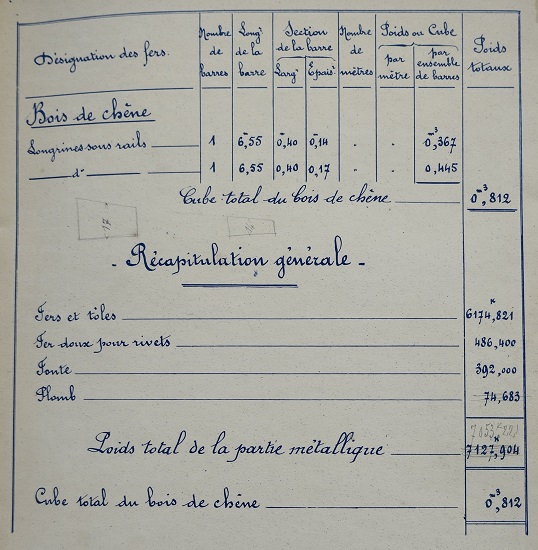 Désignation des fers. Nombre de barres Longr de la barre Section de la barre Largr Épaisr Nombre de mètres Poids ou Cube par mètre par ensemble de barres Poids totaux
Bois de chêne
Longrines sous rails 1 6m,55 0m,40 0m,14 . . 0m3,367
do 1 6,55 0,40 0,17 . . 0,445
Cube total du bois de chêne 0m3,812
17
- Récapitulation générale -
Fers et tôles 6174k,821
Fer doux pour rivets 486,400
Fonte 392,000
Plomb 74,683
7053k221
Poids total de la partie métallique 7127k,904
Cube total du bois de chêne 0m3,812